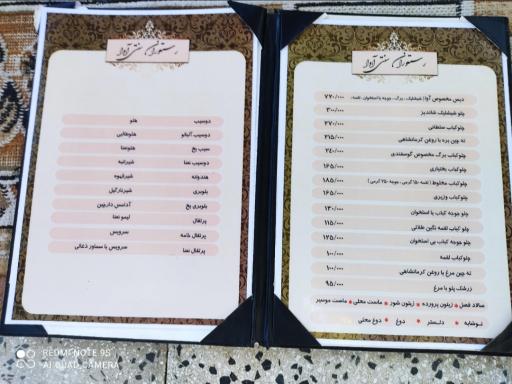 رستوران سنتی آدوار
دیس مخصوص آدوا( شیشلیک، برگ، جوجه با استخوان، لقمه) ۷۷۰/۰۰۰
چلو شیشلیک شاندیز ۳۰۰/۰۰۰
چلوکباب سلطانی ۲۷۰/۰۰۰
ته چین بره با روغن کرمانشاهی ۲۱۵/۰۰۰
چلوکباب برگ مخصوص گوسفندی ۲۴۰/۰۰۰
چلوکباب بختیاری ۱۶۵/۰۰۰
چلوکباب مخلوط ۱۸۵/۰۰۰
چلوکباب وزیری ۱۶۵/۰۰۰
چلو جوجه کباب با استخوان ۱۳۰/۰۰۰
چلو کباب لقمه نگین طلائی ۱۱۵/۰۰۰
چلو جوجه کباب بی استخوان ۱۲۵/۰۰۰
چلو کباب لقمه ۱۰۰/۰۰۰
ته چین مرغ با روغن کرمانشاهی ۱۰۰/۰۰۰
زرشک پلو با مرغ ۹۵/۰۰۰
سالاد فصل • زیتون پرورده • زیتون شور • ماست محلی • ماست موسیر
نوشابه • دلستر • دوغ • دوغ محلی
رستوران سنتی آدوار
دوسیب هلو
دوسیب آلبالو هلونعنایی
سیب یخ
دوسیب نعنا شیرانبه
هندوانه شیرقهوه
بلوبری شیرنارگیل
بلوبری یخ آدامس دارچین
پرتقال لیمو نعنا
پرتقال خامه سرویس
پرتقال نعنا سرویس با سماور ذغالی
REDMI NOTE 9S
AI QUAD CAMERA